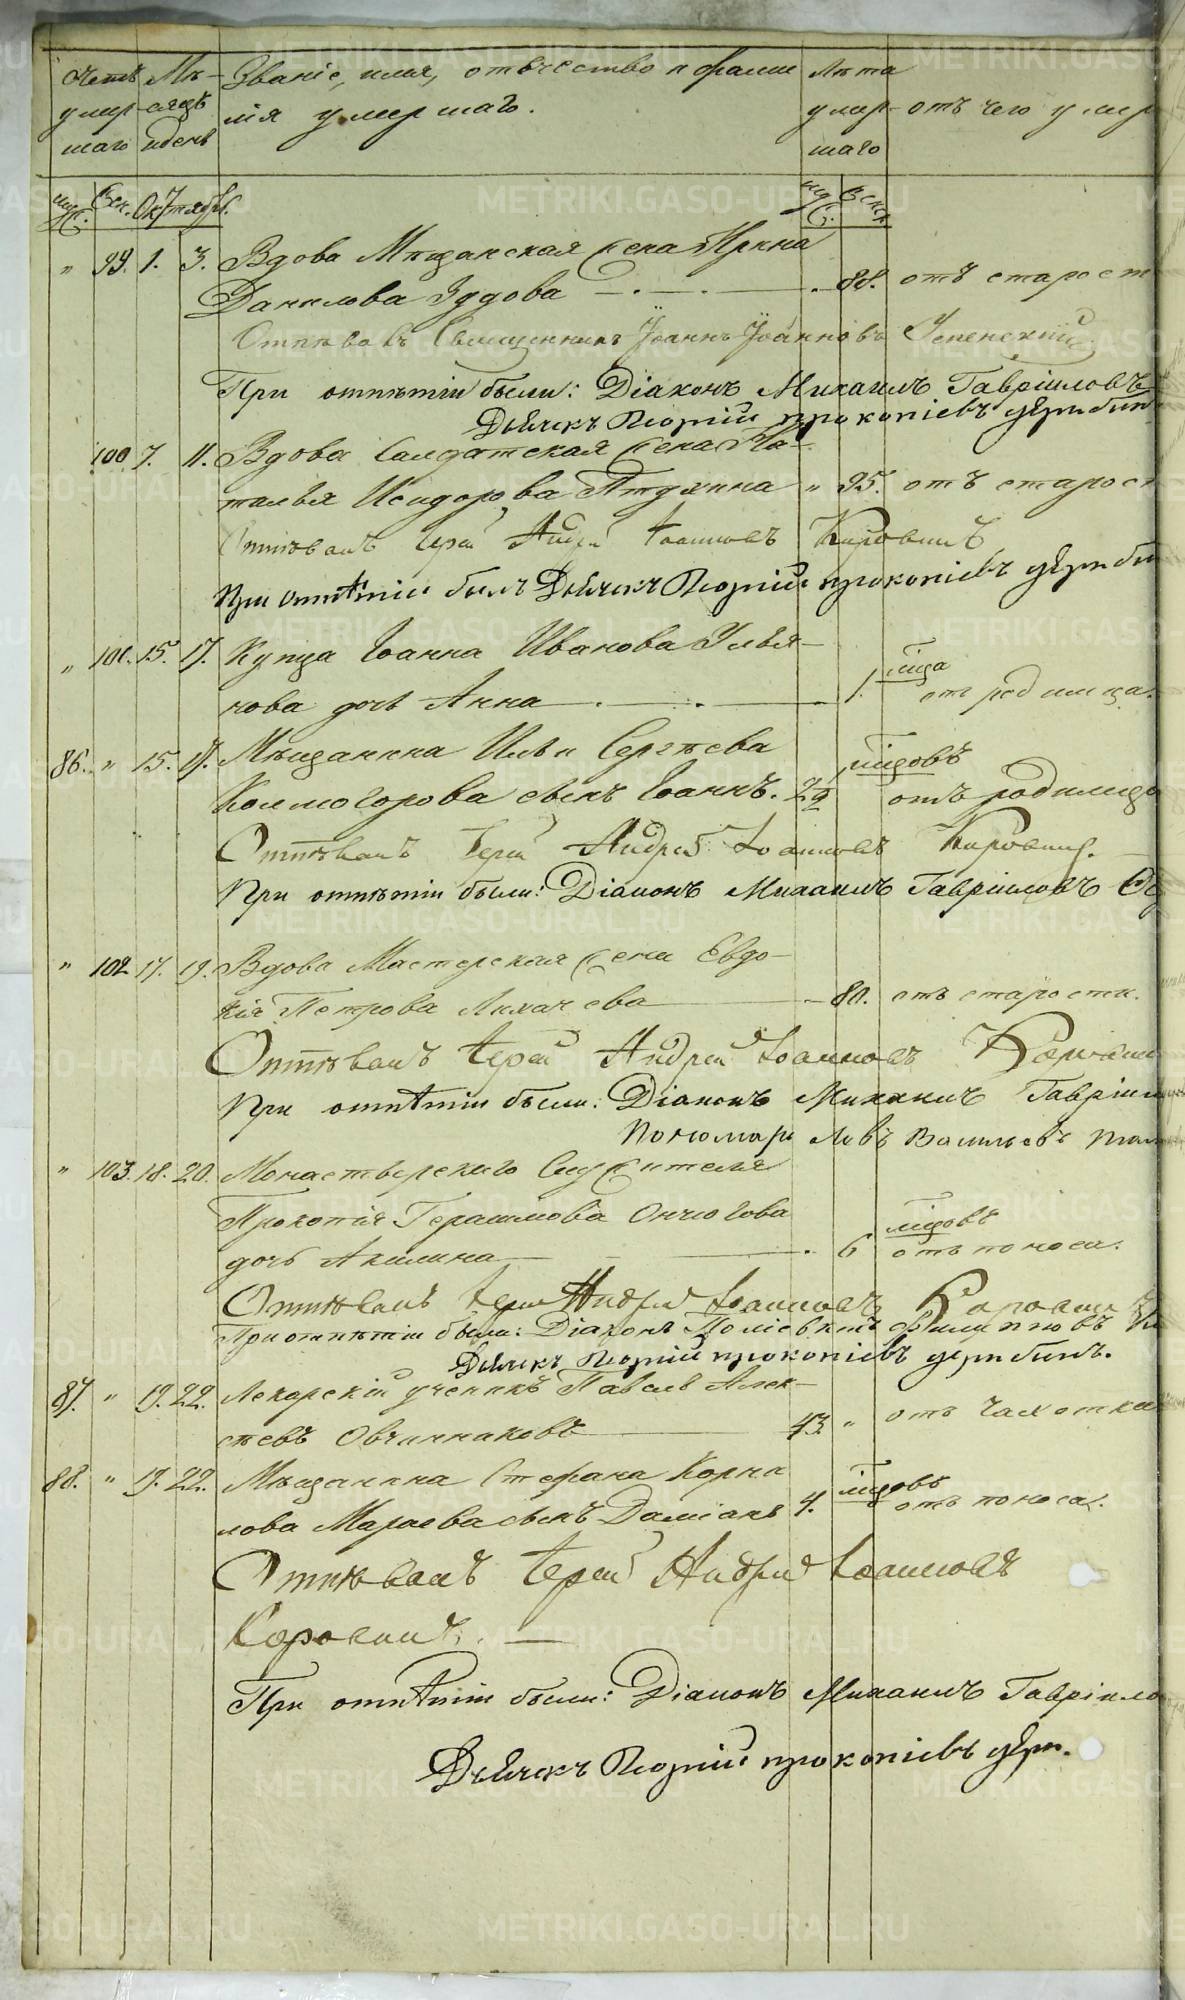 Счетъ Мѣ- Званіе, имя, отечество и фами Лѣта
умер- сяцъ лія умершаго. умер- отъ чего умер
шаго и день шаго
муж. жен. Октябрь. муж. женск.
" 99. 1. 3. Вдова Мѣщанская жена Ирина
Данилова Зудова 88. отъ старост
Отпѣвалъ Священникъ Іоаннъ Іоанновъ Успенскій
При отпѣтіи были: Діаконъ Михаилъ Гавріиловъ
Дьячекъ Георгій прокопіевъ
100. 7. 11. Вдова Салдатская жена На-
талья Исидорова Птухина " 95. отъ старост
Отпѣвалъ Іерей Андрей Іоанновъ Коровинъ
При отпѣтіи былъ Дьячекъ Георгій прокопіевъ
" 101. 15. 17. Купца Іоанна Иванова Улья-
нова дочь Анна 1. мѣсяца отъ родимца.
86. " 15. 17. Мѣщанина Ильи Сергѣева
Колмогорова сынъ Іоаннъ. 2½ мѣсяцовъ отъ родимца
Отпѣвалъ Іерей Андрей Іоанновъ Коровинъ.
При отпѣтіи были: Діаконъ Михаилъ Гавріиловъ
" 102 17. 19. Вдова Мастерская жена Евдо-
кія Петрова Лихачева 80. отъ старости.
Отпѣвалъ Іерей Андрей Іоанновъ Коровин
При отпѣтіи были: Діаконъ Михаилъ Гавріил
Пономарь Левъ Васильевъ
" 103. 18. 20. Монастырскаго Служителя
Прокопія Герасимова Ончюгова
дочь Акилина 6 мѣсяцовъ отъ поноса.
Отпѣвалъ Іерей Андрей Іоанновъ Коровин
При отпѣтіи были: Діаконъ Поліевктъ Филипповъ
Дьячекъ Георгій прокопіевъ
87. " 19. 22. Лекарскій ученикъ Павелъ Алек-
сѣевъ Овчинниковъ 43. " отъ чахотки
88. " 19. 22. Мѣщанина Стефана Корни
лова Мараева сынъ Даміанъ 4. мѣсяцовъ отъ поноса.
Отпѣвалъ Іерей Андрей Іоанновъ
Коровинъ.
При отпѣтіи были: Діаконъ Михаилъ Гавріило
Дьячекъ Георгій прокопіевъ